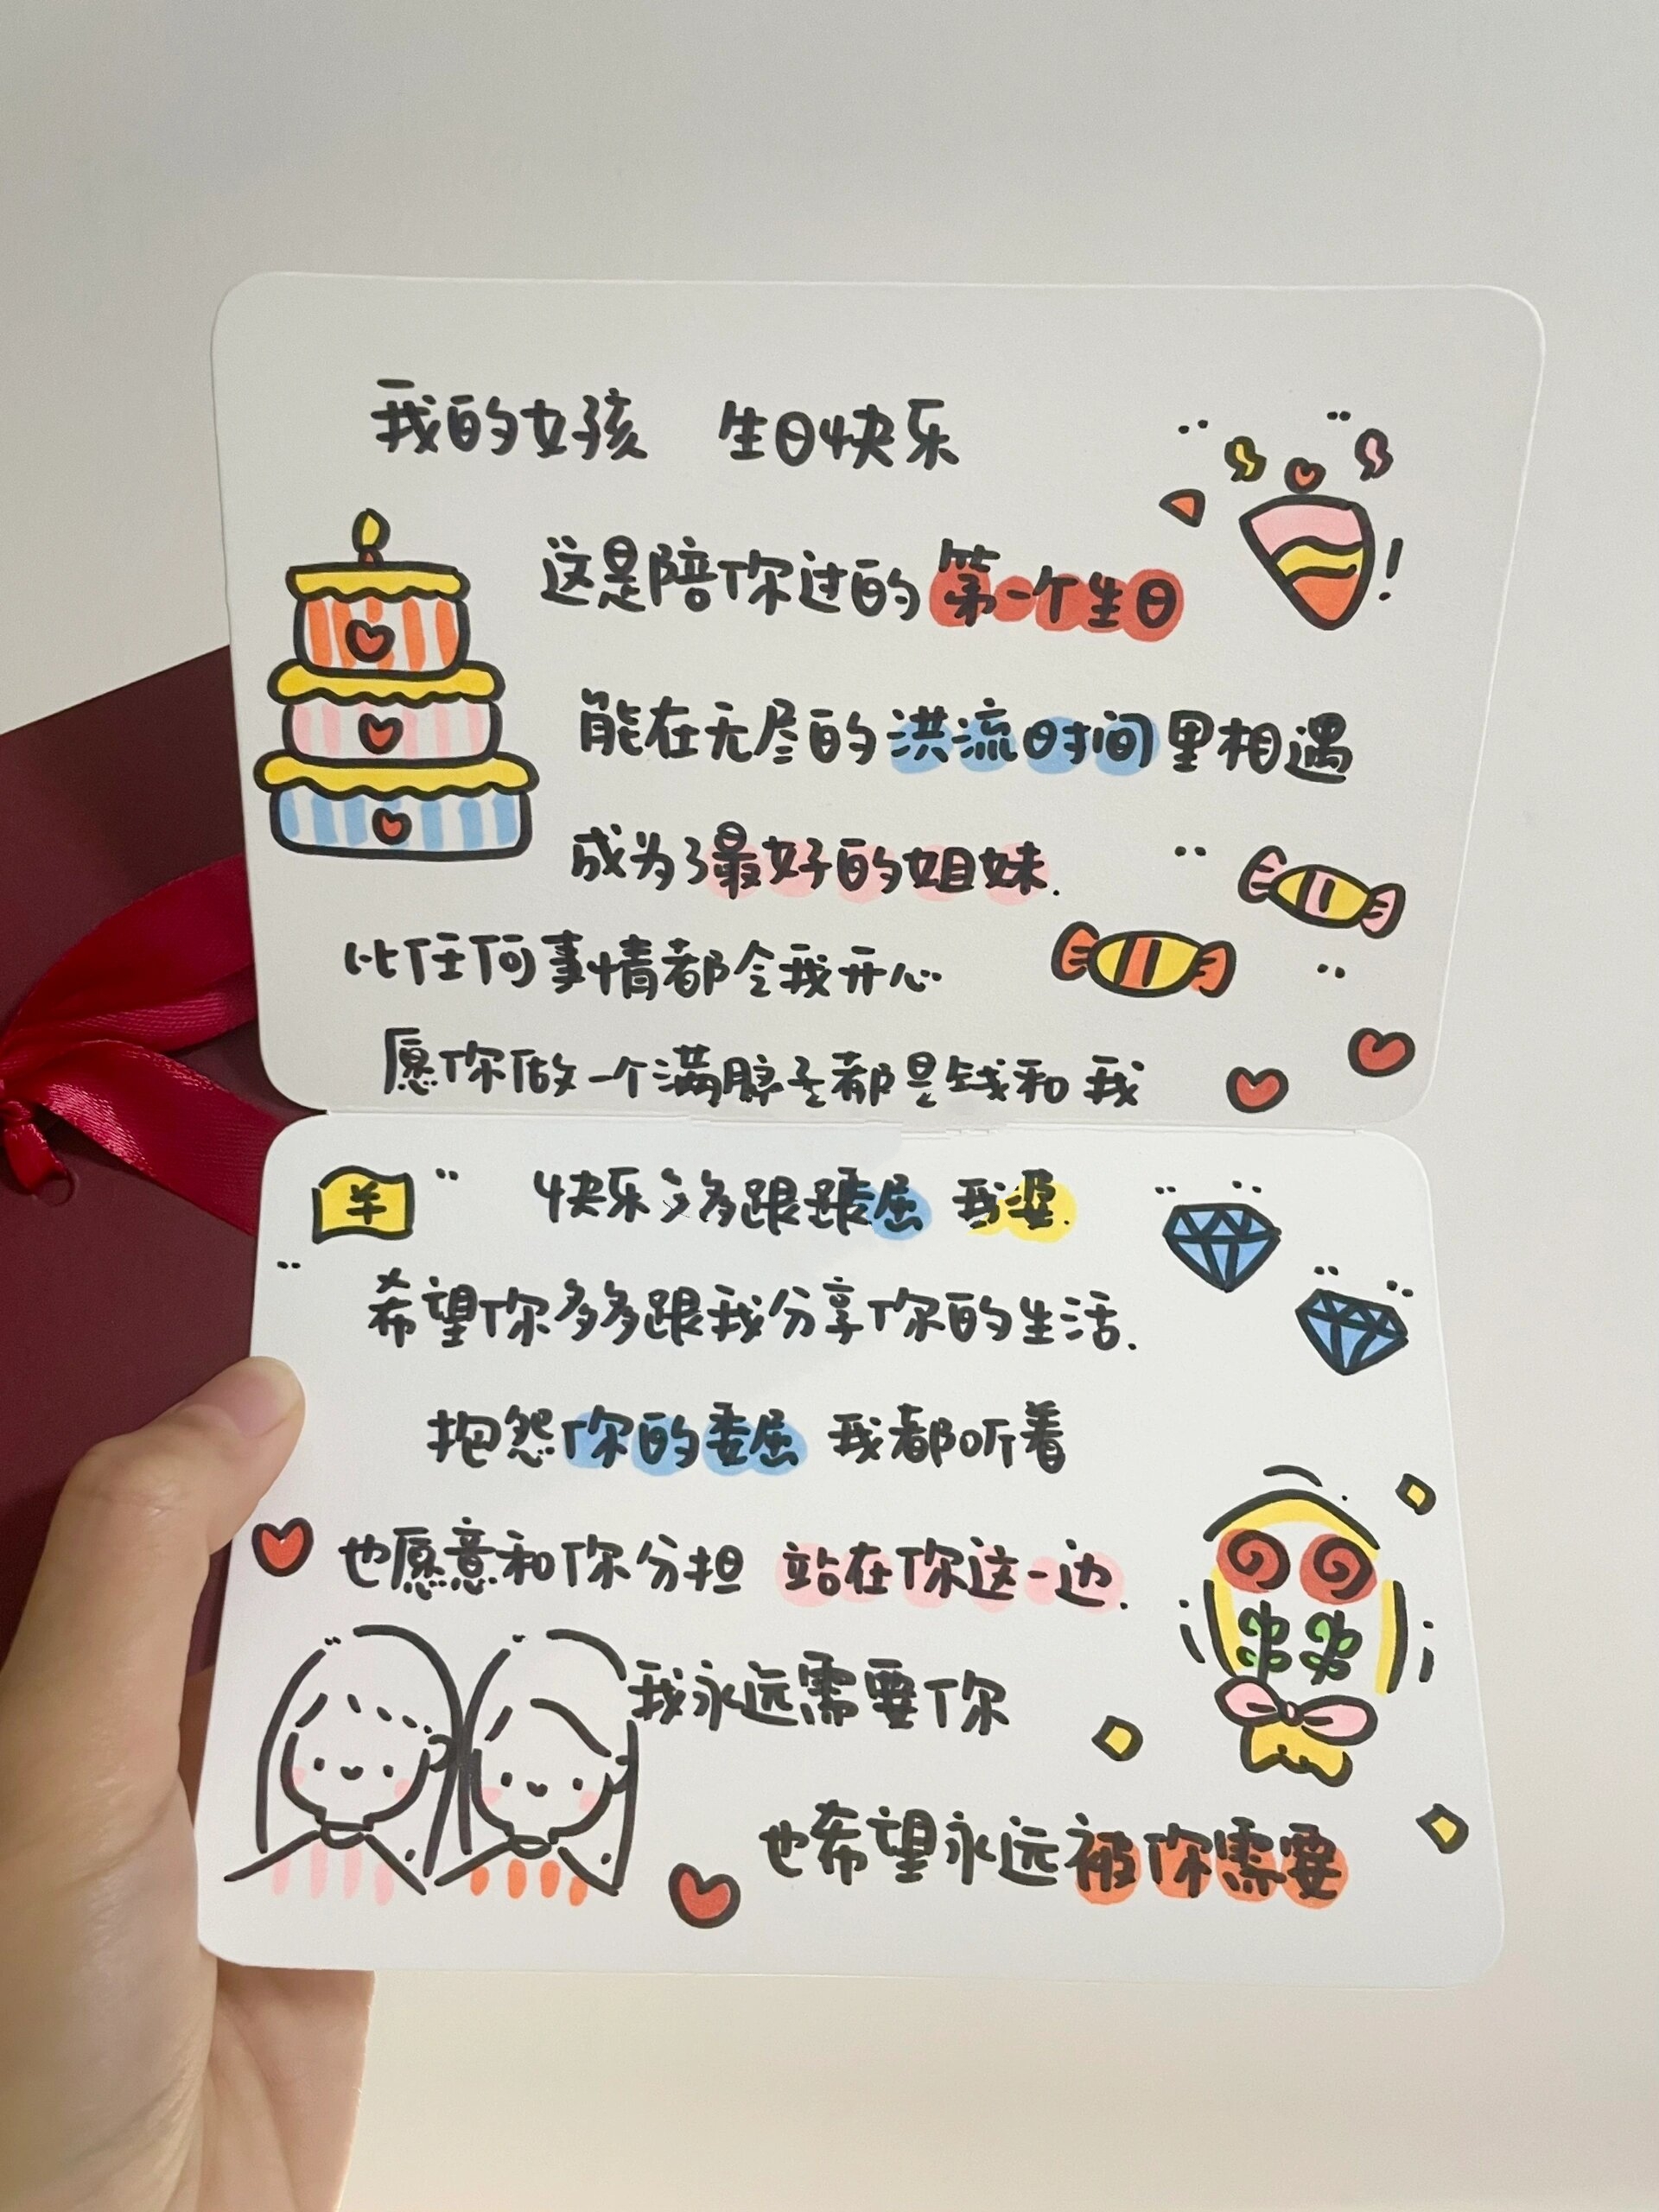 我的女孩 生日快乐
这是陪你过的第一个生日
能在无尽的洪流时间里相遇
成为了最好的姐妹.
比任何事情都令我开心
愿你做一个满脑子都是钱和我
快乐多多跟
希望你多多跟我分享你的生活.
抱怨你的委屈 我都听着
也愿意和你分担 站在你这一边.
我永远需要你
也希望永远被你需要